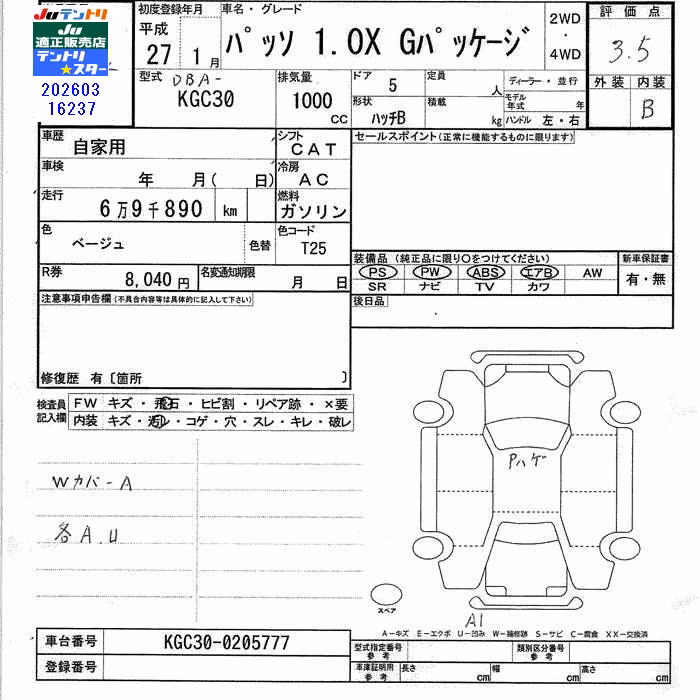 JUテントリ
JU適正販売店
テントリ
★スター
202603
16237
初度登録年月
平成
27 1月
車名・グレード
パッソ 1.0X Gパッケージ
2WD
・
4WD
評価点
3.5
外装 内装
B
型式
DBA-
KGC30
排気量
1000
CC
ドア
5
定員
人
ディーラー・並行
形状
ハッチB
積載
kg
モデル年式
年
ハンドル 左・右
車歴
自家用
シフト
CAT
セールスポイント(正常に機能するものに限ります)
車検
年 月( 日)
冷房
AC
走行
6万9千890 km
燃料
ガソリン
色
ベージュ
色替
色コード
T25
装備品(純正品に限り○をつけてください)
PS PW ABS エアB AW
SR ナビ TV カワ
新車保証書
有・無
R券
8,040円
名変通知期限
月 日
後日品
注意事項申告欄(不具合内容等は具体的に記入して下さい)
修復歴 有〔箇所 〕
検査員
記入欄
FW キズ・飛石・ヒビ割・リペア跡・×要
内装 キズ・汚レ・コゲ・穴・スレ・キレ・破レ
Wカバ-A
各A.U
Pハゲ
スペア
A1
A-キズ E-エクボ U-凹み W-補修跡 S-サビ C-腐食 XX-交換済
車台番号
KGC30-0205777
登録番号
型式指定番号
参考
類別区分番号
参考
車庫証明用
参考
長さ cm
幅 cm
高さ cm